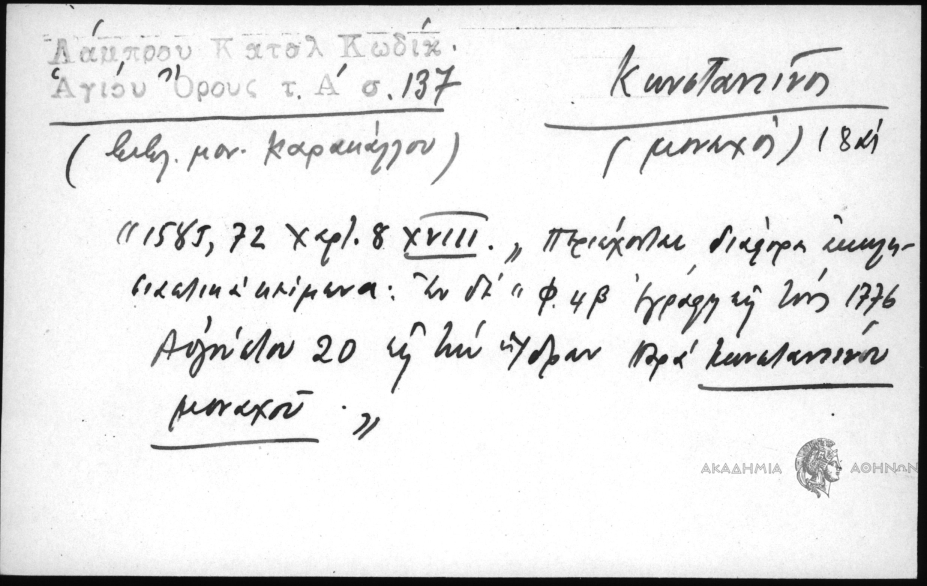 Λάμπρου Κατάλ Κωδίκ.
Ἁγίου Ὄρους τ. Α΄ σ. 137
Κωνσταντῖνος
(βιβλ. μον. Καρακάλλου)
(μοναχός) 18 αἰ
"1585, 72 χαρτ. 8 XVIII. „ Περιέχονται διάφορα ἐκκλη-
σιαστικά κείμενα: Ἐν δέ " φ. 4β Ἐγράφη εἰς τούς 1776
Αὐγούστου 20 εἰς τὴν Παρά Κωνσταντίνου
μοναχοῦ. „
ΑΚΑΔΗΜΙΑ ΑΘΗΝΩΝ